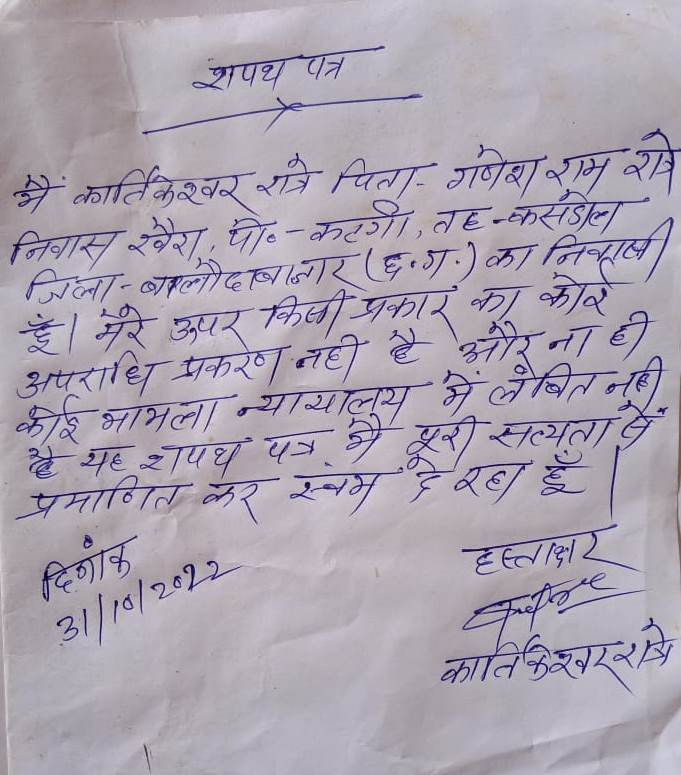 शपथ पत्र
मैं कार्तिकेश्वर रात्रे पिता - गणेश राम रात्रे
निवास खैरा, पो.- कटगी, तह - कसडोल
जिला - बालौदाबाजार (छ.ग.) का निवासी
हूँ। मेरे ऊपर किसी प्रकार का कोई
अपराधि प्रकरण नही है और ना ही
कोई मामला न्यायालय में लंबित नही
है यह शपथ पत्र मै पूरी सत्यता से
प्रमाणित कर स्वंम दे रहा हूँ।
दिनांक
31/10/2022
हस्ताक्षर
कार्तिकेश्वर रात्रे